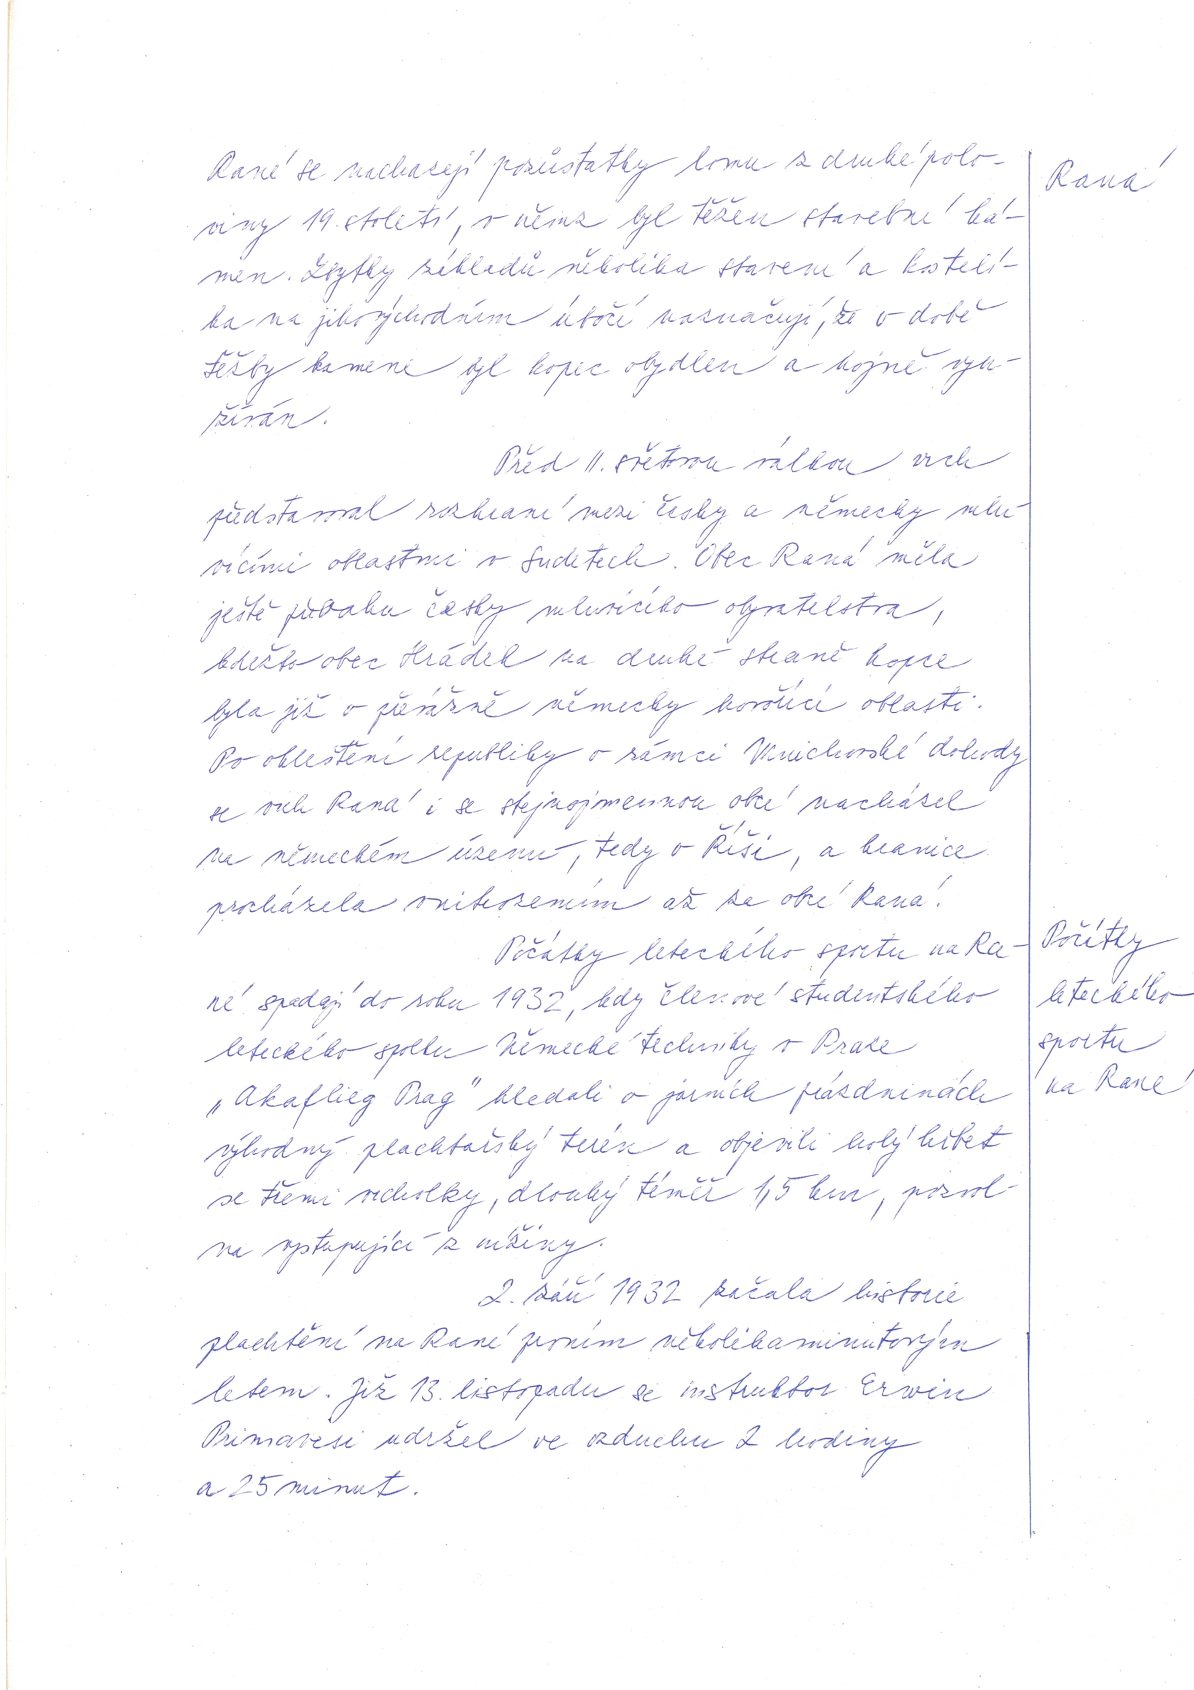 Rané se nacházejí pozůstatky lomu z druhé polo-
viny 19. století, v němž byl těžen stavební ká-
men. Zbytky základů několika stavení a kostelí-
ka na jihovýchodním úbočí naznačují, že v době
těžby kamene byl kopec obydlen a hojně vyu-
žíván.
Před II. světovou válkou vrch
představoval rozhraní mezi česky a německy mlu-
vícími oblastmi v Sudetech. Obec Raná měla
ještě převahu česky mluvícího obyvatelstva,
kdežto obec Hrádek na druhé straně kopce
byla již v převážně německy hovořící oblasti.
Po okleštění republiky v rámci Mnichovské dohody
se vrch Raná i se stejnojmennou obcí nacházel
na německém území, tedy v Říši, a hranice
procházela vnitrozemím až za obcí Raná.
Počátky leteckého sportu na Ra-
né spadají do roku 1932, kdy členové studentského
leteckého spolku Německé techniky v Praze
„Akaflieg Prag" hledali o jarních prázdninách
výhodný plachtařský terén a objevili holý hřbet
se třemi vrcholky, dlouhý téměř 1,5 km, pozvol-
na vystupující z nížiny.
2. září 1932 začala historie
plachtění na Rané prvním několikaminutovým
letem. Již 13. listopadu se instruktor Erwin
Primavesi udržel ve vzduchu 2 hodiny
a 25 minut.
Raná
Počátky
leteckého
sportu
na Rané